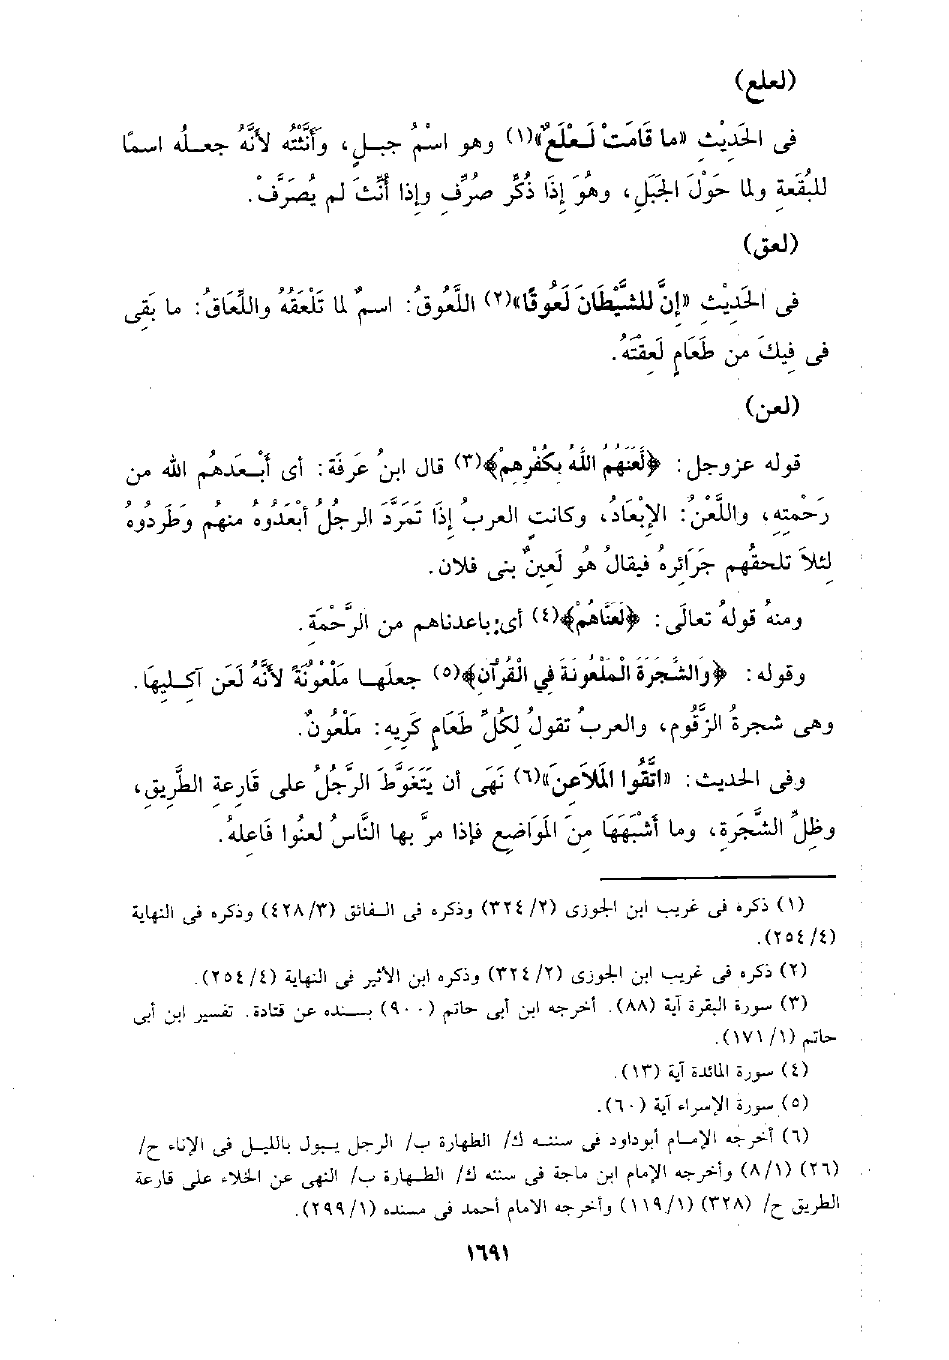 (لعلع)
فى الحَدِيْثِ «ما قَامَتْ لَـعْلَعٌ»(١) وهو اسْمُ جبـلٍ، وأَنَّثْتُه لأنَّهُ جعـلُه اسمًا
للبُقَعةِ ولما حَوْلَ الجَبَلِ، وهُوَ إِذَا ذُكِّر صرُِّف وإذا أُنِّثَ لم يُصَرَّفْ.
(لعق)
فى الحَدِيْثِ «إنَّ للشَّيْطَانَ لَعُوقًا»(٢) اللَّعُوقُ: اسمٌ لما تَلْعَقُهُ واللِّعَاقُ: ما بَقِى
فى فِيكَ من طَعَامٍ لَعِقْتَهُ.
(لعن)
قوله عزوجل: ﴿لَّعَنَهُمُ اللَّهُ بِكُفْرِهِمْ﴾(٣) قال ابنُ عَرفَة: أى أبْـعَدهُم الله من
رَحْمتِهِ، واللَّعْنُ: الإِبْعَادُ، وكانتِ العربُ إذَا تَمَرَّدَ الرجلُ أبْعَدُوهُ منهُم وطَردُوهُ
لِئلاَ تلحقُهم جَرَائرهُ فيقالُ هُو لَعينٌ بنى فلان.
ومنهُ قولهُ تعالَى: ﴿لَعَنَّاهُمْ﴾(٤) أى: باعدناهم من الرَّحْمَةِ.
وقوله: ﴿وَالشَّجَرَةَ الْمَلْعُونَةَ فِي الْقُرْآنِ﴾(٥) جعلَهـا مَلْعُونَةً لأنَّهُ لَعَن آكـلِيهَا.
وهى شجرةُ الزَّقُوم، والعربُ تقولُ لِكُلِّ طَعَامٍ كَرِيهٍ: مَلْعُونٌ.
وفى الحديث: «اتَّقُوا المَلاَعِنَ»(٦) نَهَى أن يَتَغَوَّطَ الرَّجُلُ على قَارِعةِ الطَّرِيقِ،
وظِلِّ الشَّجَرَةِ، وما أشْبَهَهَا مِنَ المَوَاضِعِ فإذا مرَّ بها النَّاسُ لعنُوا فَاعِلهُ.
(١) ذكره فى غريب ابن الجوزى (٢/ ٣٢٤) وذكره فى الـفائق (٣/ ٤٢٨) وذكره فى النهاية
(٤/ ٢٥٤).
(٢) ذكره فى غريب ابن الجوزى (٢/ ٣٢٤) وذكره ابن الأثير فى النهاية (٤/ ٢٥٤).
(٣) سورة البقرة آية (٨٨). أخرجه ابن أبى حاتم (٩٠٠) بسـنده عن قتادة. تفسير ابن أبى
حاتم (١/ ١٧١).
(٤) سورة المائدة آية (١٣).
(٥) سورة الإسراء آية (٦٠).
(٦) أخرجه الإمـام أبوداود فى سننـه ك/ الطهارة ب/ الرجل يـبول بالليـل فى الإناء ح/
(٢٦) (١/ ٨) وأخرجه الإمام ابن ماجة فى سننه ك/ الطـهارة ب/ النهى عن الخلاء على قارعة
الطريق ح/ (٣٢٨) (١/ ١١٩) وأخرجه الامام أحمد فى مسنده (١/ ٢٩٩).
١٦٩١